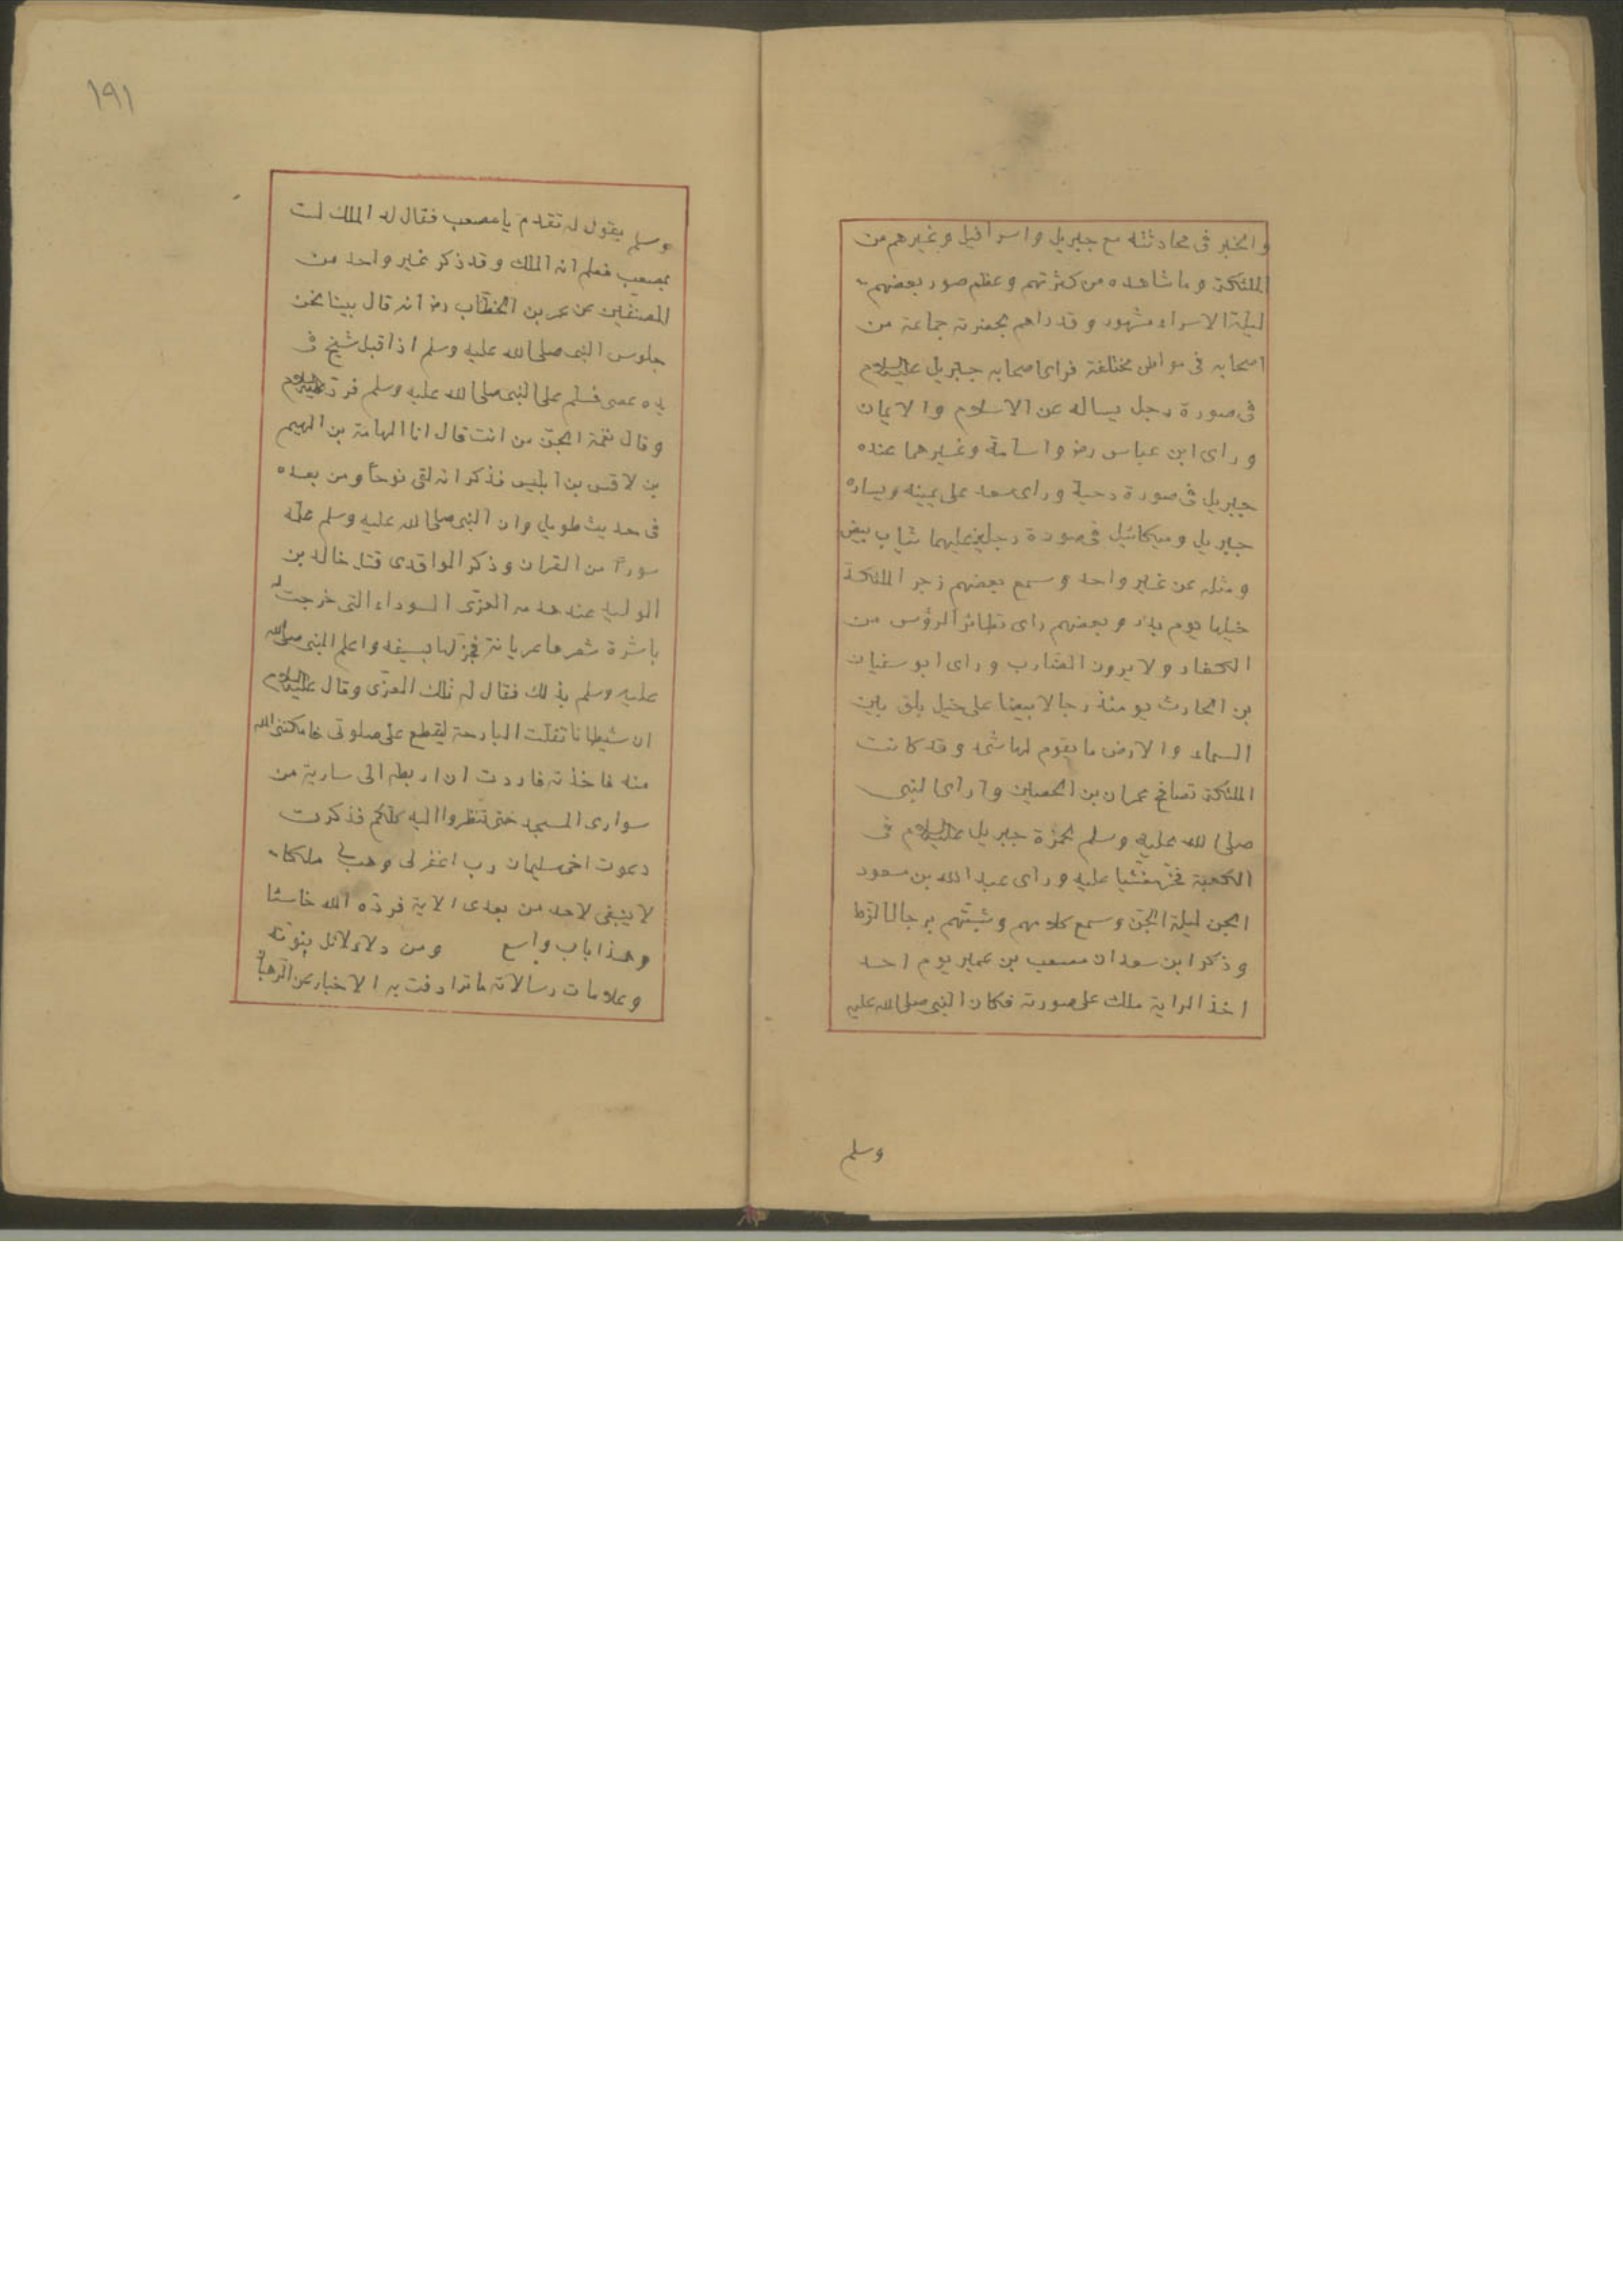 والخبر في محادثته مع جبريل واسرافيل وغيرهم من
الملئكة وما شاهده من كثرتهم وعظم صور بعضهم
ليلة الاسراء مشهور وقد راهم بحضرته جماعة من
اصحابه في مواطن مختلفة فراى اصحابه جبريل عليه السلام
في صورة رجل يساله عن الاسلام والايمان
وراى ابن عباس رض واسامة وغيرهما عنده
جبريل في صورة دحية وراى سعد على يمينه ويساره
جبريل وميكائيل في صورة رجلين عليهما ثياب بيض
ومثله عن غير واحد وسمع بعضهم زجر الملئكة
خيلها يوم بدر وبعضهم راى تطائر الرؤس من
الكفار ولا يرون الضارب وراى ابو سفيان
بن الحارث يومئذ رجالا بيضا على خيل بلق بين
السماء والارض ما يقوم لها شئ وقد كانت
الملئكة تصافح عمران بن الحصين وارى النبي
صلى الله عليه وسلم لحمزة جبريل عليه السلام في
الكعبة فخر مغشيا عليه وراى عبد الله بن مسعود
الجن ليلة الجن وسمع كلامهم وشبّههم برجال الزط
وذكر ابن سعد ان مصعب بن عمير يوم احد
اخذ الراية ملك على صورته فكان النبي صلى الله عليه
وسلم
١٩١
وسلم يقول له تقدم يا مصعب فقال له الملك لست
بمصعب فعلم انه الملك وقد ذكر غير واحد من
المصنفين عن عمر بن الخطّاب رض انه قال بينا نحن
جلوس النبي صلى الله عليه وسلم اذ اقبل شيخ في
يده عصى فسلم على النبي صلى الله عليه وسلم فردّ عليه السلام
وقال نغمة الجنّ من انت قال انا الهامة بن الهيم
بن لاقس بن ابليس فذكر انه لقى نوحاً ومن بعده
في حديث طويل وان النبي صلى الله عليه وسلم علّمه
سوراً من القران وذكر الواقدى قتل خالد بن
الوليد عند هدمه العزّى السوداء التى خرجت له
ناشرة شعرها عريانة فجزّلها بسيفه واعلم النبي صلى الله
عليه وسلم بذلك فقال له تلك العزّى وقال عليه السلام
ان شيطانا تفلّت البارحة ليقطع على صلوتى فامكننى الله
منه فاخذته فاردت ان اربطه الى سارية من
سوارى المسجد حتى تنظروا اليه كلّكم فذكرت
دعوت اخى سليمان رب اغفر لى وهب لى ملكا
لا ينبغى لاحد من بعدى الاية فردّه الله خاسئا
وهذا باب واسع ومن دلائل نبوّته
وعلامات رسالاته ما ترادفت به الاخبار عن الرهبان